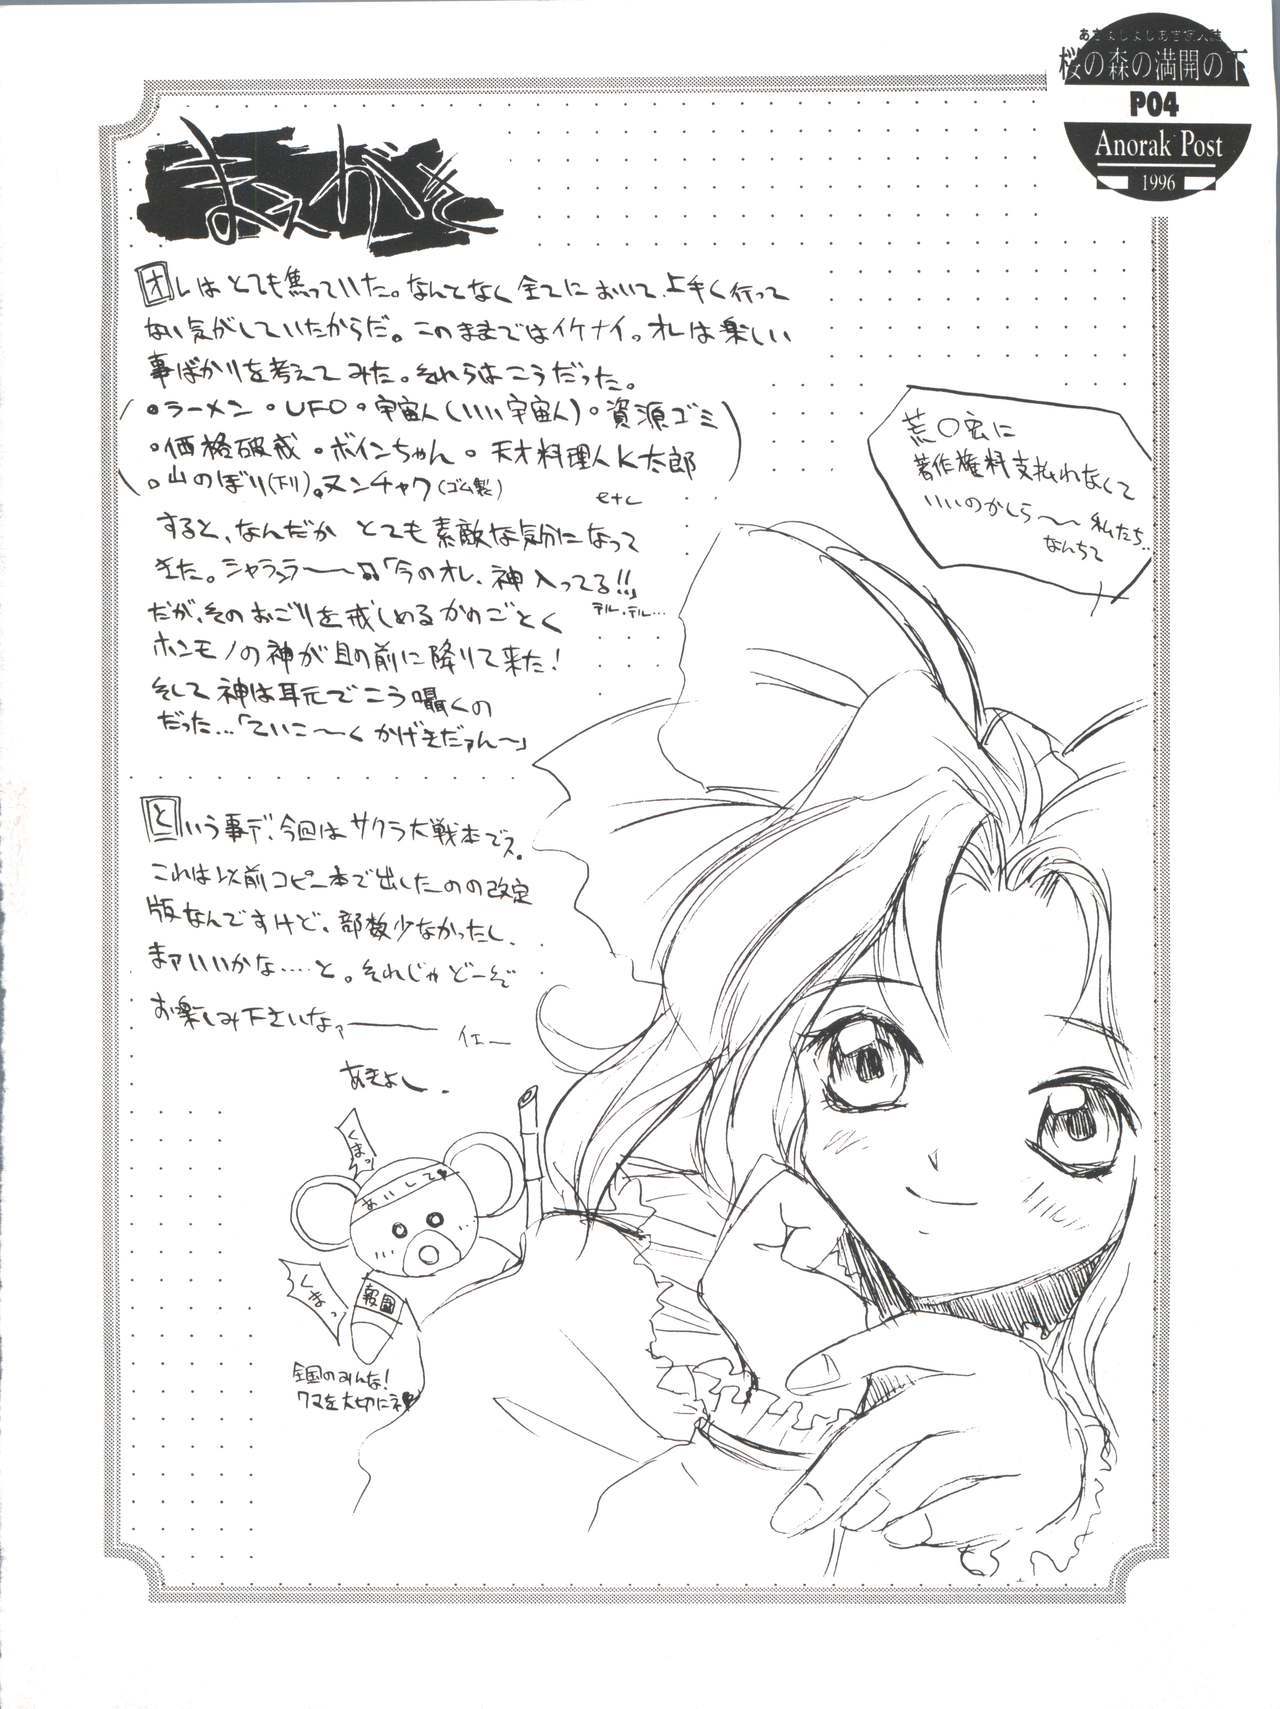 桜の森の満開の下
P04
Anorak Post
1996
まえがき
オレはとても焦っていた。なんとなく全てにおいて、上手く行って
ない気がしていたからだ。このままではイケナイっオレは楽しい
事ばかりを考えてみた。それらはこうだった。
•ラーメン•UFO•宇宙人(いい宇宙人)•資源ゴミ
•価格破戒•ボインちゃん•天才料理人K太郎
•山のぼり(下り)•ヌンチャク(ゴム製)
etc
すると、なんだか とても素敵な気分になって
きた。シャララ〜〜♫「今のオレ、神入ってる!!」
テル、テル…
だが、そのおごりを戒しめるかのごとく
ホンモノの神が目の前に降りて来た!
そして神は耳元でこう囁くの
だった…「ていこ〜〜くかげきだァん〜」
という事デ、今回はサクラ大戦本でス。
これは以前コピー本で出したのの改定
版なんですけど、部数少なかったし、
まァいいかな……と。それじゃどーぞ
お楽しみ下さいなァ――― イエー
あきよし.
荒〇宏に
著作権料支払わなくて
いいのかしら〜〜私たち..
なんちて
くまっ
あいして♥
くまっ
報國
全国のみんな!
クマを大切にネ♥